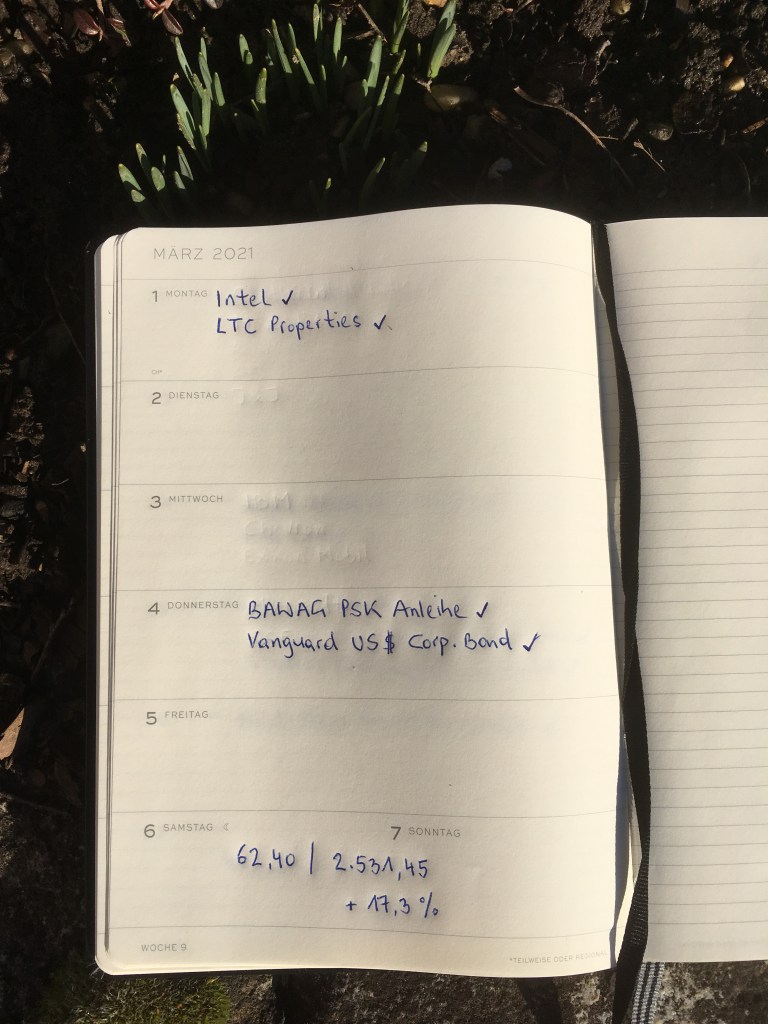 MÄRZ 2021
1 MONTAG Intel ✓
LTC Properties ✓
CH*
2 DIENSTAG
3 MITTWOCH
4 DONNERSTAG BAWAG PSK Anleihe ✓
Vanguard US$ Corp. Bond ✓
5 FREITAG
6 SAMSTAG ☾ 7 SONNTAG
62,40 | 2.531,45
+ 17,3 %
WOCHE 9
*TEILWEISE ODER REGIONAL